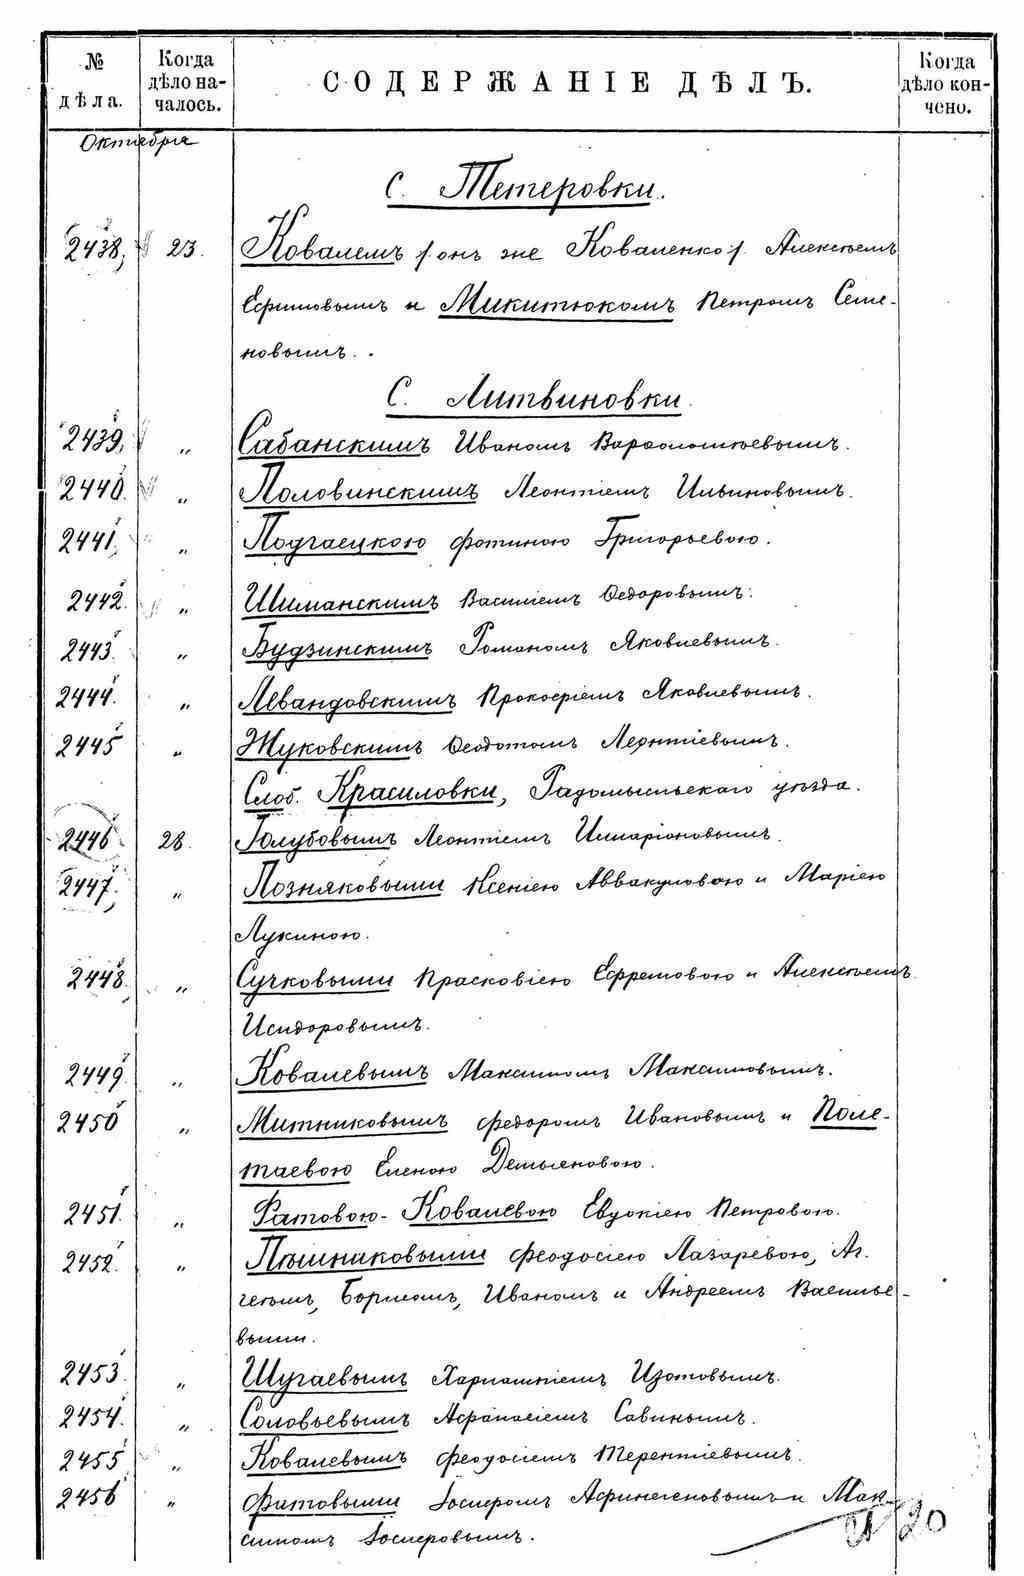 № дѣла.
Когда дѣло началось.
СОДЕРЖАНІЕ ДѢЛЪ.
Когда дѣло кончено.
Октября
С. Тетеровки.
2438, 23. Ковалемъ /:онъ же Коваленко:/ Алексѣемъ
Ефимовымъ и Микитюкомъ Петромъ Семе-
новымъ.
С. Литвиновки.
2439, " Сабанскимъ Иваномъ Варѳоломѣевымъ.
2440. " Половинскимъ Леонтіемъ Ильиновымъ.
2441, " Подгаецкою Фотиною Григорьевою.
2442. " Шиманскимъ Василіемъ Ѳедоровымъ.
2443. " Будзинскимъ Романомъ Яковлевымъ.
2444. " Левандовскимъ Прокофіемъ Яковлевымъ.
2445 " Жуковскимъ Ѳеодотомъ Леонтіевымъ.
Слоб. Красиловки, Радомысльскаго уѣзда.
2446 28. Голубовымъ Леонтіемъ Илларіоновымъ.
2447. " Позняковыми Ксеніею Аввакумовою и Маріею
Лукиною.
2448. " Сучковыми Прасковіею Ефремовою и Алексѣемъ
Исидоровымъ.
2449. " Ковалевымъ Максимомъ Максимовымъ.
2450 " Митниковымъ Федоромъ Ивановымъ и Поле-
таевою Еленою Демьяновою.
2451. " Ратовою-Ковалевою Евдокіею Петровою.
2452. " Пѣшниковыми Феодосіею Лазаревою, Аг-
геемъ, Борисомъ, Иваномъ и Андреемъ Василье-
выми.
2453. " Шугаевымъ Харлампіемъ Изотовымъ.
2454. " Соловьевымъ Афанасіемъ Савинымъ.
2455 " Ковалевымъ Феодосіемъ Терентіевымъ.
2456 " Фатовыми Іосифомъ Афиногеновымъ и Мак-
симомъ Іосифовымъ.
20